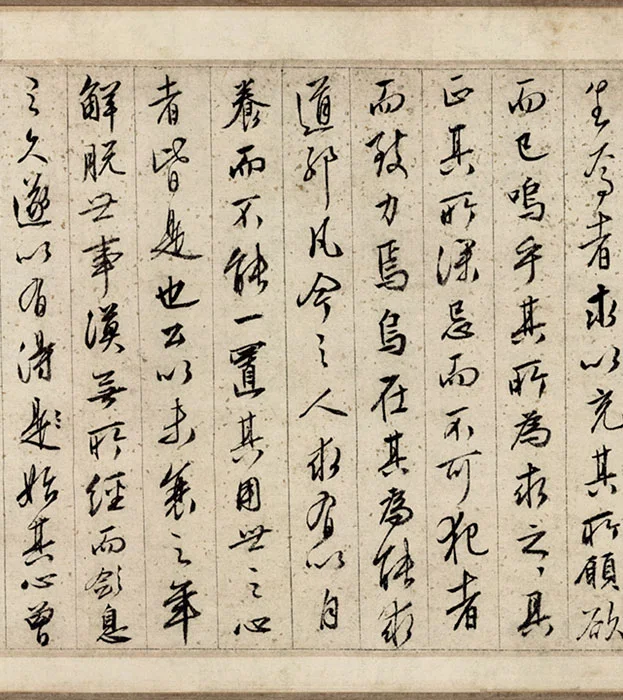 生為者求以充其所願欲
而已嗚乎其所為求之〻具
正其所深忌而不可犯者
而致力焉烏在其為能求
道邪凡今之人求有以自
養而不能一置其用世之心
者皆是也公以未衰之年
解脱世事漠無所經而歛息
之久遂以有得是〻殆其心曾